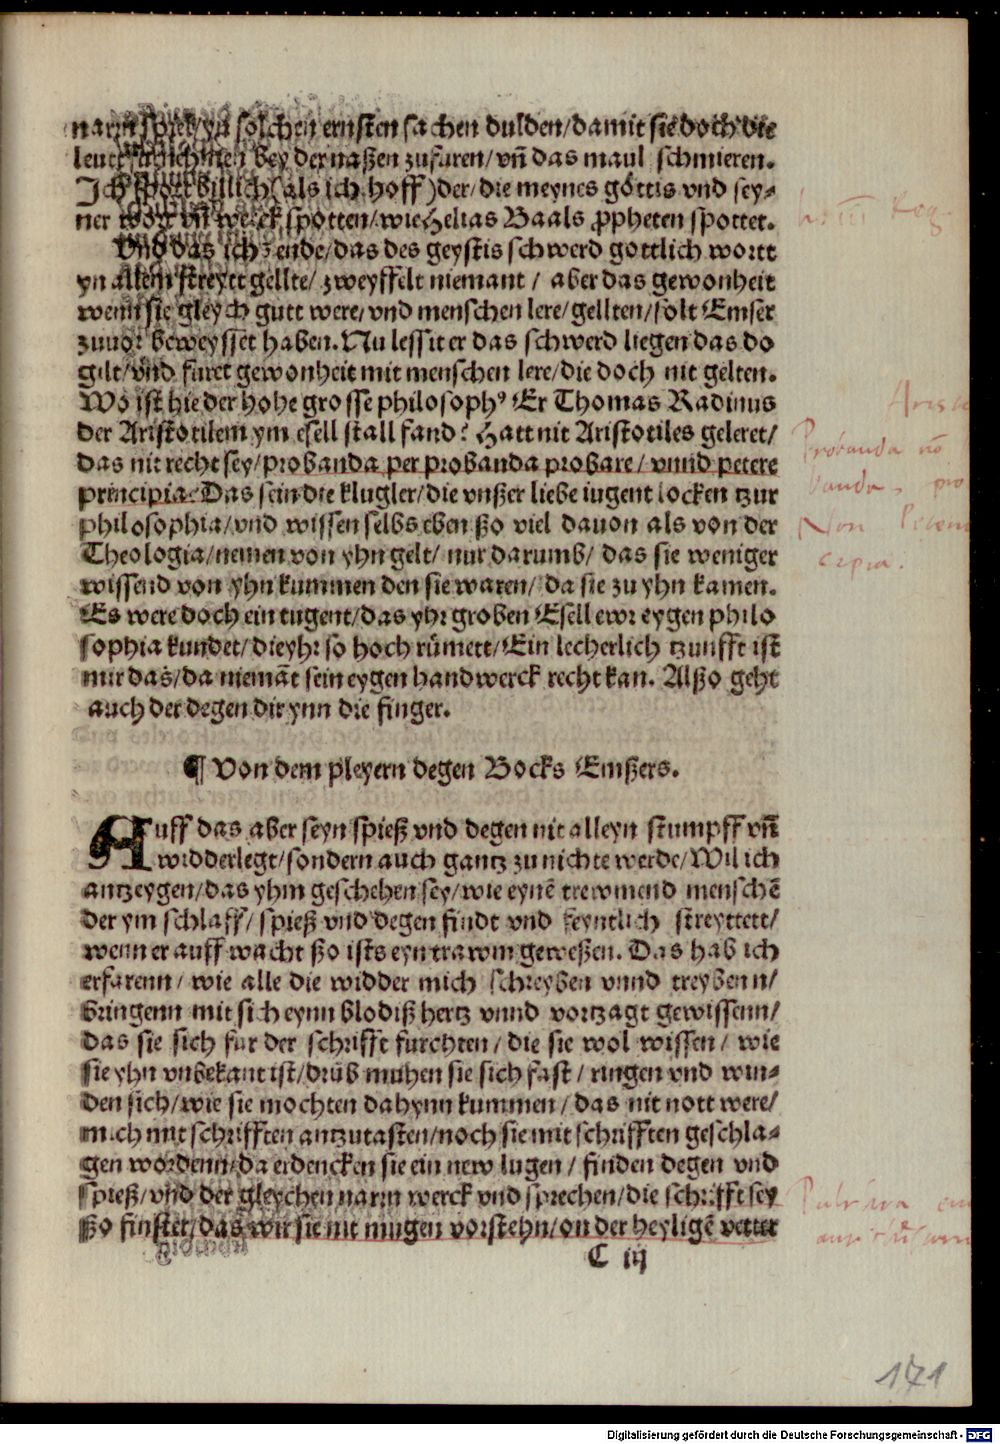 narnn spiel/yn solchen ernsten sachen dulden/damit sie doch die
leut bey der naßen zufuren/vñ das maul schmieren.
Ich spott billich (als ich hoff) der/die meynes gottis vnd sey-
ner wort vñ werck spotten/wie Helias Baals ꝓpheten spottet.
Vnd das ich zende/das des geystis schwerd gottlich wortt
yn allem streytt gellte/ zweyffelt niemant / aber das gewonheit
wenn sie gleych gutt were/vnd menschen lere/gellten/solt Emser
zuuor beweysset haben. Nu lessit er das schwerd liegen das do
gilt/vnd furet gewonheit mit menschen lere/die doch nit gelten.
Wo ist hie der hohe grosse philosophꝰ Er Thomas Radinus
der Aristotilem ym esell stall fand? Hatt nit Aristotiles geleret/
das nit recht sey/probanda per probanda probare/ vnnd petere
principia. Das sein die klugler/die vnßer liebe iugent locken tzur
philosophia/vnd wissen selbs eben ßo viel dauon als von der
Theologia/nemen von yhn gelt/ nur darumb/ das sie weniger
wissend von yhn kummen den sie waren/ da sie zu yhn kamen.
Es were doch ein tugent/das yhr groben Esell ewr eygen philo
sophia kundet/die yhr so hoch rümett/Ein lecherlich tzunfft ist
mir das/da niemãt sein eygen handwerck recht kan. Alßo geht
auch der degen dir ynn die finger.
¶ Von dem pleyern degen Bocks Emßers.
Auff das aber seyn spieß vnd degen nit alleyn stumpff vñ
widderlegt/sondern auch gantz zu nichte werde/Wil ich
antzeygen/das yhm geschehen sey/wie eynẽ trewmend menschẽ
der ym schlaff/ spieß vnd degen findt vnd feyntlich streyttett/
wenn er auff wacht ßo ists eyn trawm geweßen. Das hab ich
erfarenn/ wie alle die widder mich schreyben vnnd treybenn/
bringenn mit sich eynn blodiß hertz vnnd vortzagt gewissenn/
das sie sich fur der schrifft furchten/ die sie wol wissen/ wie
sie yhn vnbekant ist/drüb muhen sie sich fast/ ringen vnd win-
den sich/wie sie mochten dahynn kummen/das nit nott were/
mich mit schrifften antzutasten/noch sie mit schrifften geschla-
gen wordenn/da erdencken sie ein new lugen/ finden degen vnd
spieß/vnd der gleychen narnn werck vnd sprechen/die schrifft sey
ßo finster/das wir sie nit mugen vorstehn/on der heyligẽ vetter
C iij
Probanda nõ
Non
cipia.
171
Digitalisierung gefördert durch die Deutsche Forschungsgemeinschaft - DFG